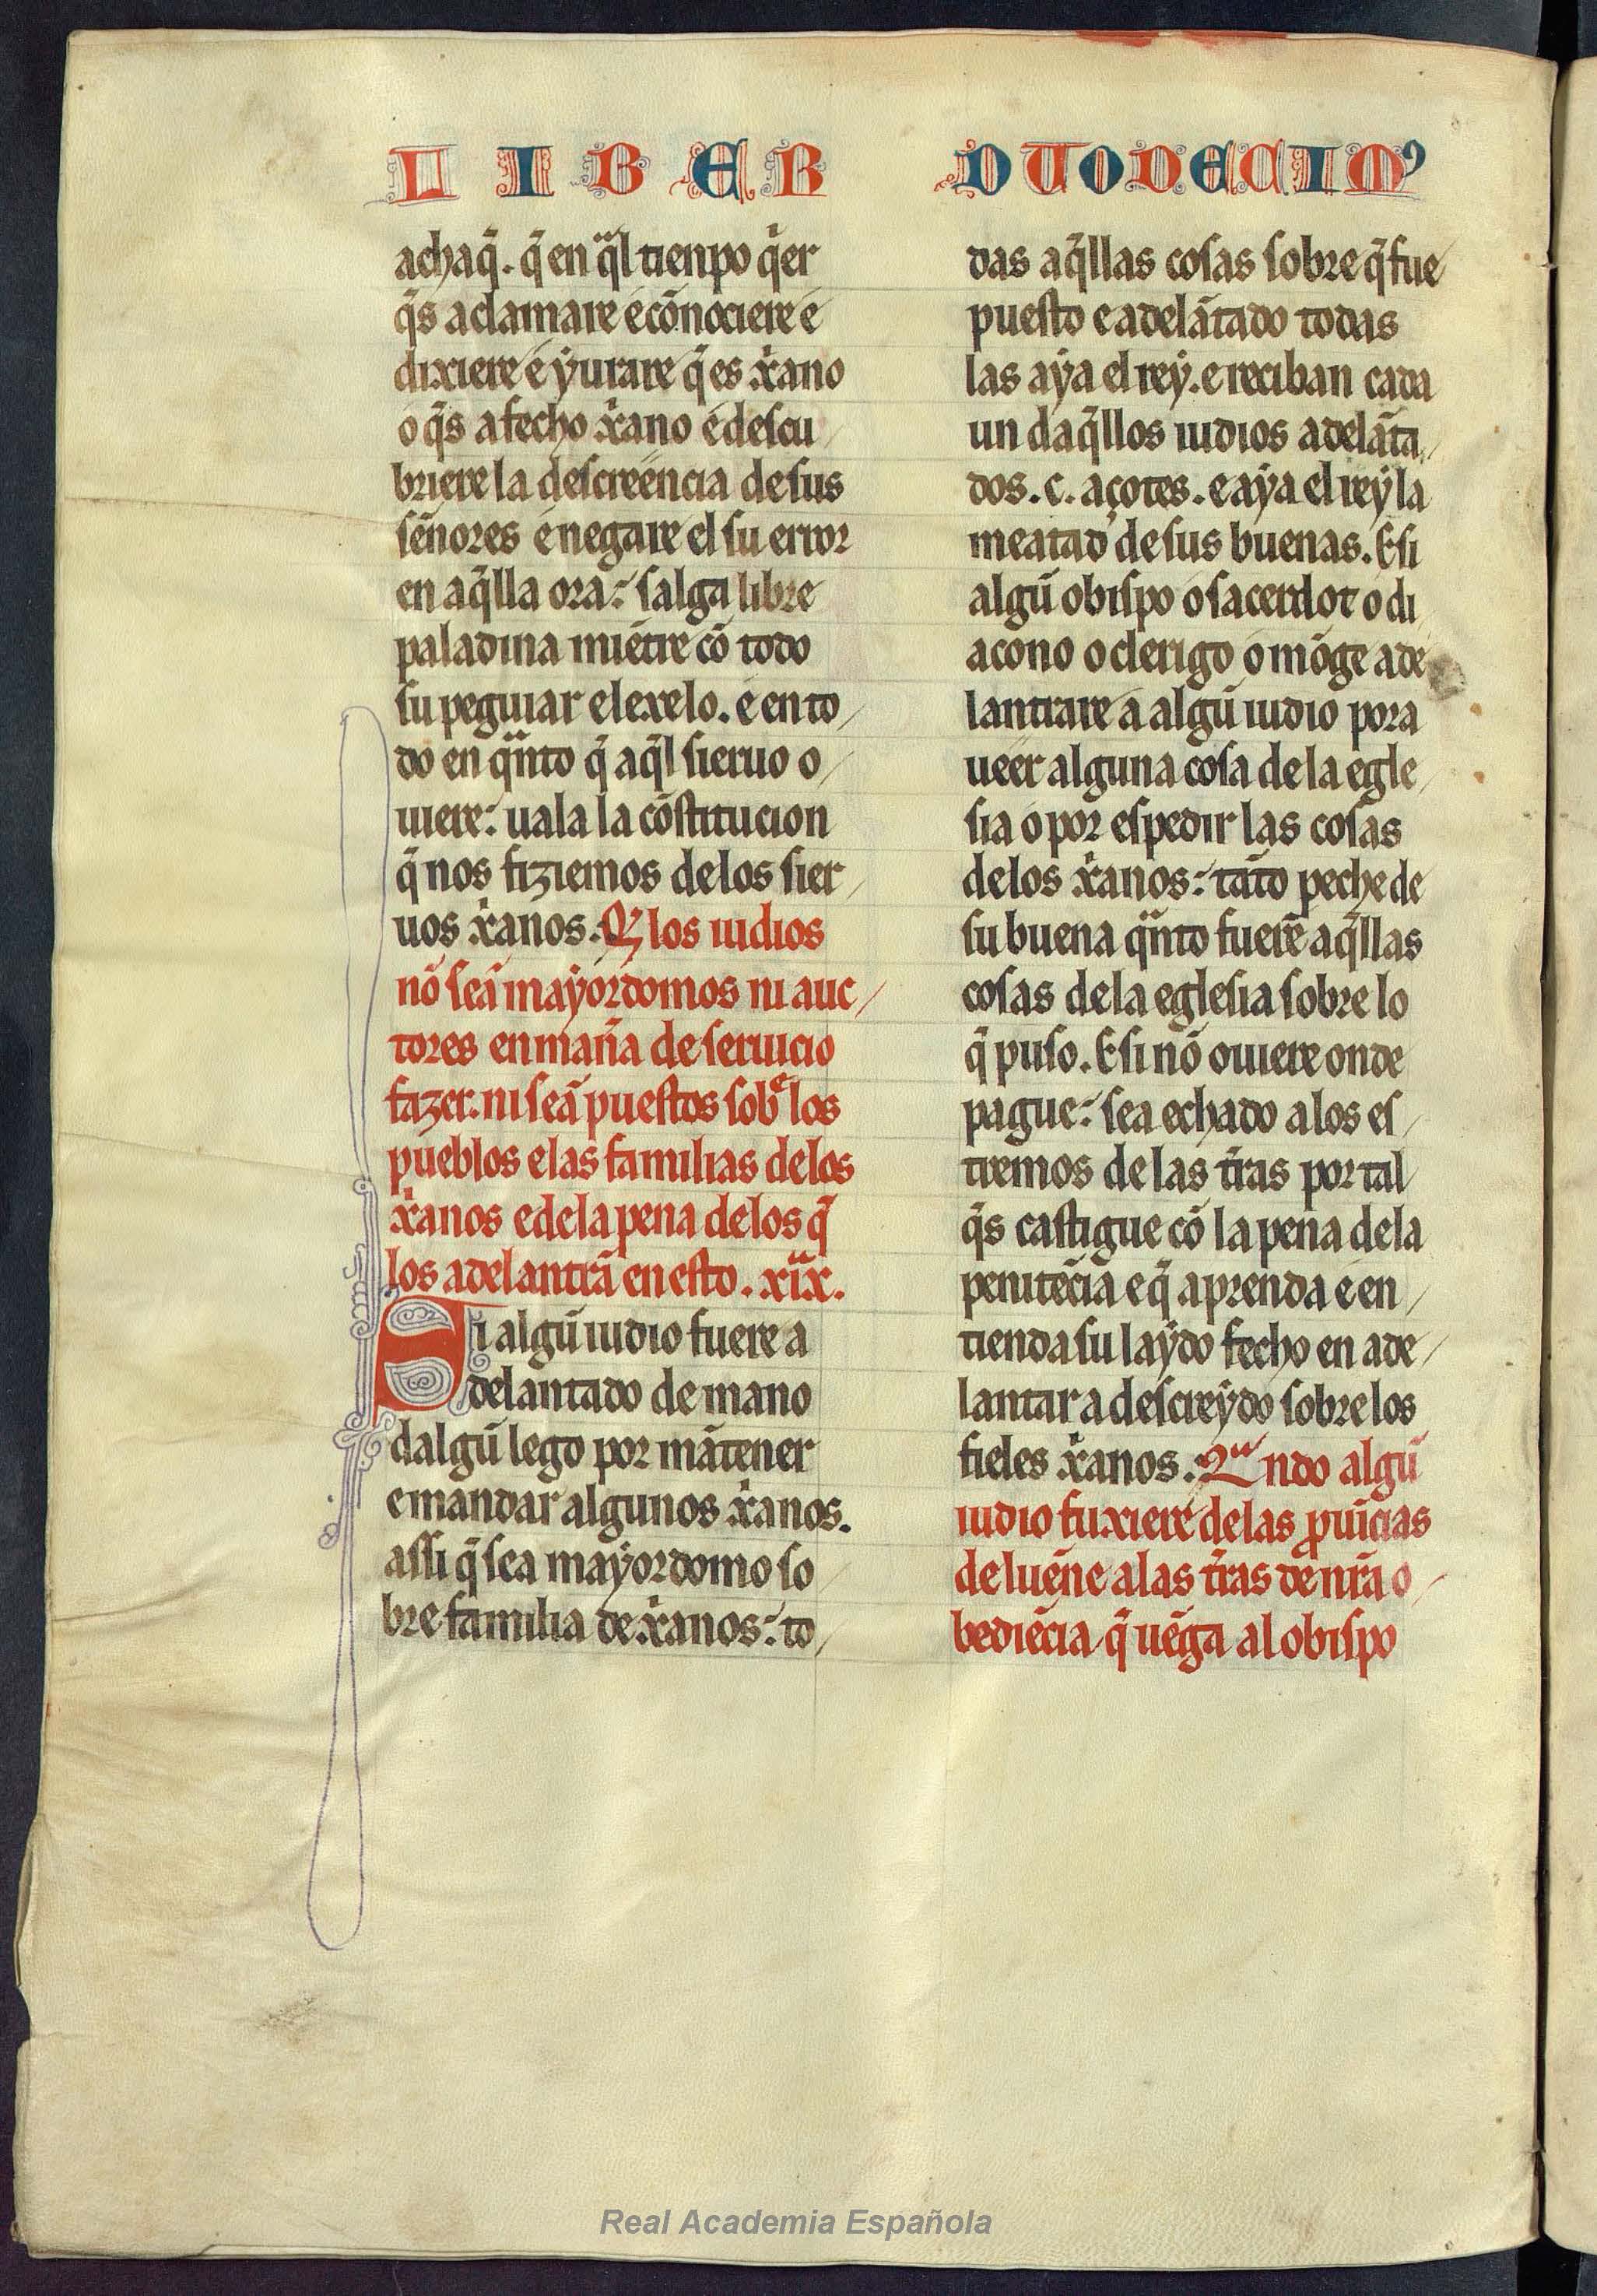 LIBER DUODECIMꝰ
achaq̃. q̃ en qͣl tienpo q̇er
q̃s aclamare e cõnociere e
dixiere e yurare q̃ es x̃ano
o q̃s a fecho x̃ano e descu
briere la descreencia de sus
señores e negare el su error
en aq̃lla ora: salga libre
paladina miẽtre cõ todo
su peguiar el exelo. e en to
do en qͣnto q̃ aq̃l sieruo o
uiere: uala la cõstitucion
q̃ nos fiziemos delos sier
uos x̃anos. Q̃ los iudios
nõ seã mayordomos ni auc
tores en mañа de seruicio
fazer. ni seã puestos sobͤ los
pueblos e las familias delos
x̃anos e dela pena delos q̃
los adelantrã en esto. xiͣx.
Si algũ iudio fuere a
delantado de mano
dalgũ lego por mãtener
e mandar algunos x̃anos.
assi q̃ sea mayordomo so
bre familia de x̃anos: to
das aq̃llas cosas sobre q̃ fue
puesto e adelãtado todas
las aya el rey. e reciban cada
un daq̃llos iudios adelãta
dos .c. açotes. e aya el rey la
meatad de sus buenas. E si
algũ obispo o sacerdot o di
acono o clerigo o mõge ade
lantrare a algũ iudio pora
ueer alguna cosa dela egle
sia o por espedir las cosas
delos x̃anos: tãto peche de
su buena qͣnto fuerẽ aq̃llas
cosas dela eglesia sobre lo
q̃ puso. E si nõ ouiere onde
pague: sea echado alos es
tremos delas tr̃as por tal
q̃s castigue cõ la pena dela
penitẽcia e q̃ aprenda e en
tienda su laydo fecho en ade
lantar a descreydo sobre los
fieles x̃anos. Qͣndo algũ
iudio fuxiere delas ꝓuĩcias
de lueñe alas tr̃as de nr̃a o
bediẽcia q̃ uẽga al obispo
Real Academia Española